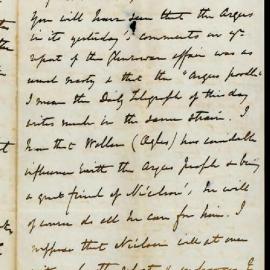 You will have seen that the Argus
in its yesterday's comments on yr
report of the affair was
nasty & that the "Argus
I mean the Daily Telegraph of this day
writes much in the same strain. I
that Waller ( ) has considerable
influence with the Argus people & being
a great friend of Nicolson's, he will
of course do all he can for him. I
suppose that Nicolson will at once